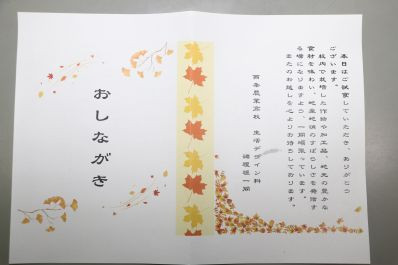 本日はご試食していただき、ありがとう
ございます。
校内で栽培した作物や加工品、地元の豊かな
食材を味わい、地産地消のすばらしさを発信す
る場になりますよう、一同頑張っています。
またのお越しを心よりお待ちしております。
西条農業高校 生活デザイン科
調理班一同
おしながき